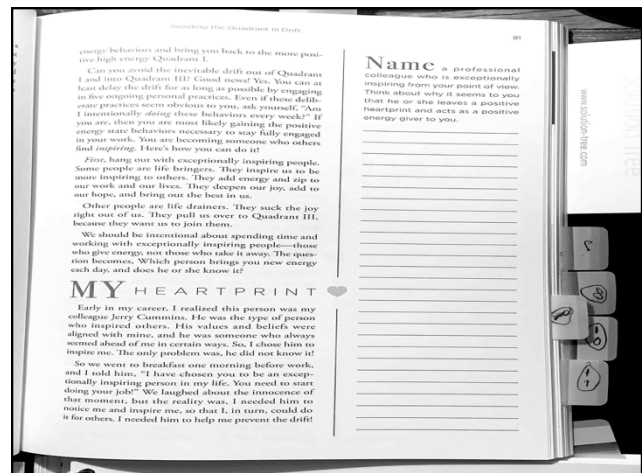 Avoiding the Quadrant III Drift
81
energy behaviors and bring you back to the more posi-
tive high energy Quadrant I.
Can you avoid the inevitable drift out of Quadrant
I and into Quadrant III? Good news! Yes. You can at
least delay the drift for as long as possible by engaging
in five ongoing personal practices. Even if these delib-
erate practices seem obvious to you, ask yourself, "Am
I intentionally doing these behaviors every week?" If
you are, then you are most likely gaining the positive
energy state behaviors necessary to stay fully engaged
in your work. You are becoming someone who others
find inspiring. Here's how you can do it!
First, hang out with exceptionally inspiring people.
Some people are life bringers. They inspire us to be
more inspiring to others. They add energy and zip to
our work and our lives. They deepen our joy, add to
our hope, and bring out the best in us.
Other people are life drainers. They suck the joy
right out of us. They pull us over to Quadrant III,
because they want us to join them.
We should be intentional about spending time and
working with exceptionally inspiring people—those
who give energy, not those who take it away. The ques-
tion becomes, Which person brings you new energy
each day, and does he or she know it?
MY HEARTPRINT
Early in my career, I realized this person was my
colleague Jerry Cummins. He was the type of person
who inspired others. His values and beliefs were
aligned with mine, and he was someone who always
seemed ahead of me in certain ways. So, I chose him to
inspire me. The only problem was, he did not know it!
So we went to breakfast one morning before work,
and I told him, "I have chosen you to be an excep-
tionally inspiring person in my life. You need to start
doing your job!" We laughed about the innocence of
that moment, but the reality was, I needed him to
notice me and inspire me, so that I, in turn, could do
it for others. I needed him to help me prevent the drift!
Name a professional
colleague who is exceptionally
inspiring from your point of view.
Think about why it seems to you
that he or she leaves a positive
heartprint and acts as a positive
energy giver to you.
www.solution-tree.com